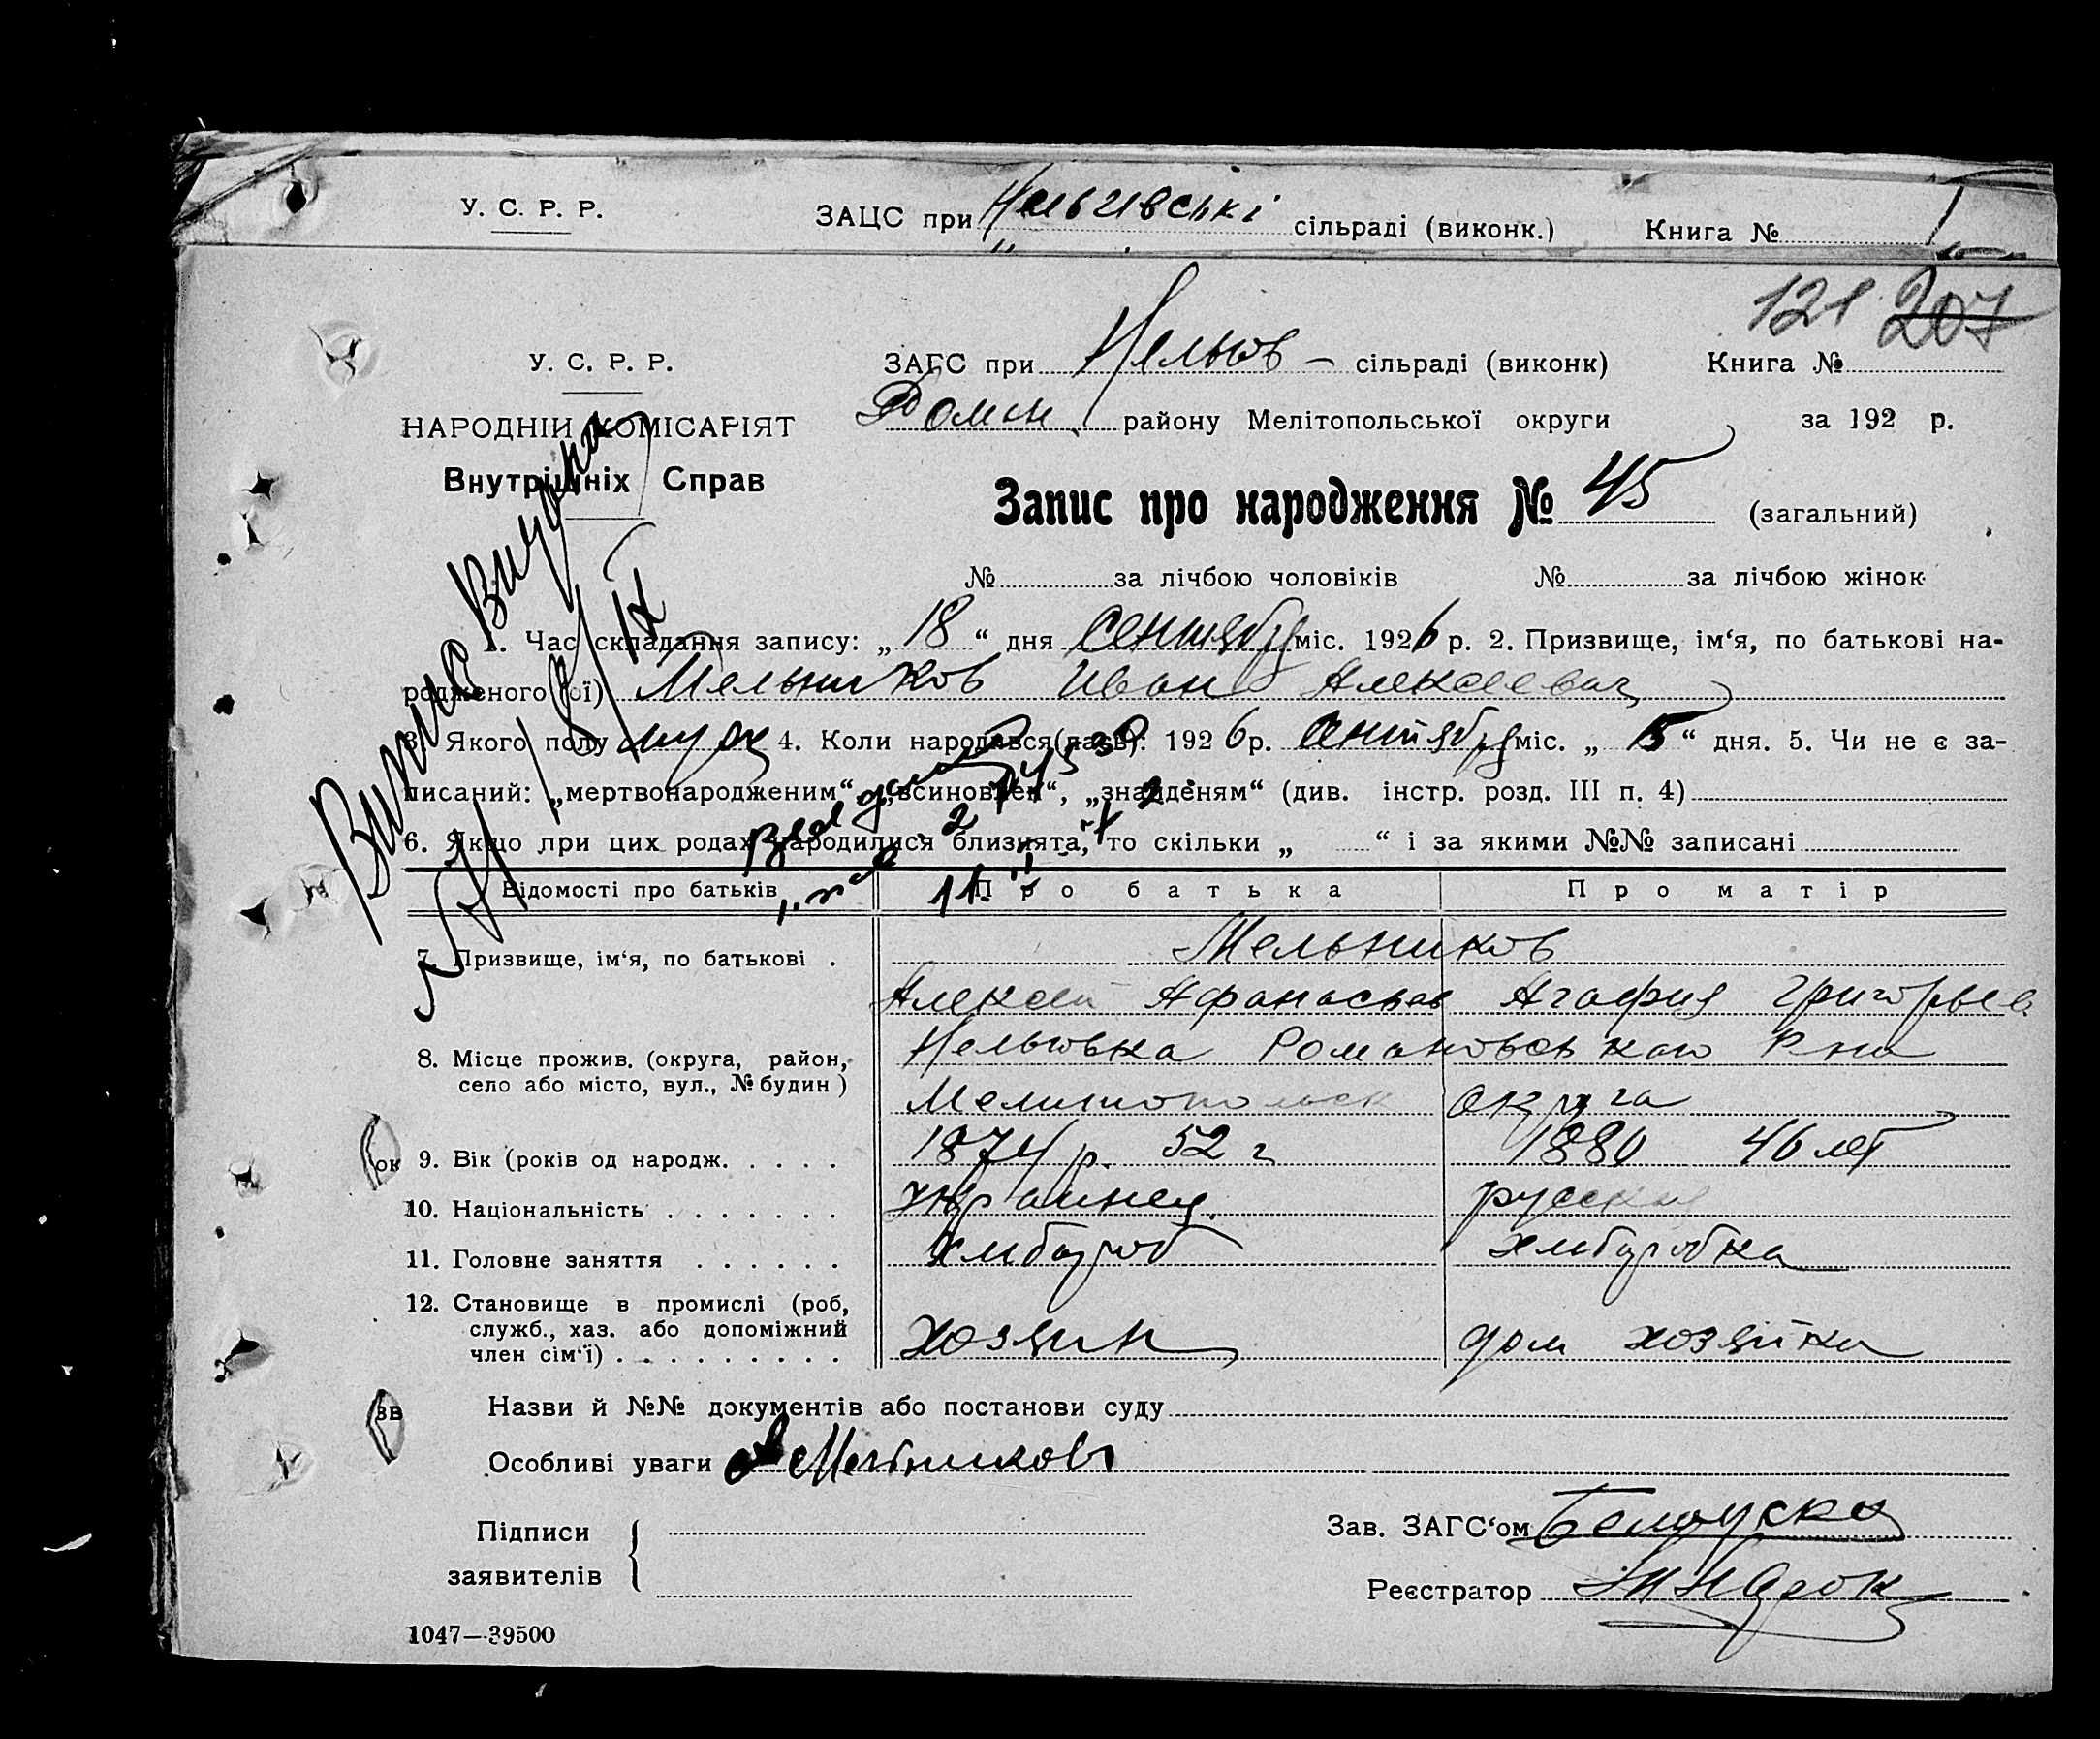 У. С. Р. Р. ЗАЦС при сільраді (виконк.) Книга №
121 207
У. С. Р. Р. ЗАГС при сільраді (виконк) Книга №
НАРОДНІЙ КОМІСАРІЯТ Ромн. району Мелітопольської округи за 192 р.
Внутрішніх Справ
Запис про народження № 45 (загальний)
№ за лічбою чоловіків № за лічбою жінок
1. Час складання запису: „ 18 “ дня сентября міс. 1926 р. 2. Призвище, ім‘я, по батькові на-
родженого (ої) Мельников Иван Алексеевич
3. Якого полу муж 4. Коли народився (лась): 1926 р. сентября міс. „ 15 “ дня. 5. Чи не є за-
писаний: „мертвонародженим“, „всиновлен“, „знайденям“ (див. інстр. розд. III п. 4)
6. Якщо при цих родах народилися близнята, то скільки „ “ і за якими №№ записані
Відомості про батьків Про батька Про матір
7. Призвище, ім‘я, по батькові . Мельников
Алексей Афанасьев Агафия Григорьев
8. Місце прожив. (округа, район, Романовского Р на
село або місто, вул., № будин) Мелитопольск округа
9. Вік (років од народж. . . . . 1874 р. 52 г 1880 46 лет
10. Національність . . . . . . . украинец. русская
11. Головне заняття . . . . . . хлібороб хліборобка
12. Становище в промислі (роб,
служб., хаз. або допоміжний хозяин дом хозяйка
член сім‘ї) . . . . . . . . .
Назви й №№ документів або постанови суду
Особливі уваги Мельников
Підписи Зав. ЗАГС‘ом
заявителів Реєстратор
1047—39500